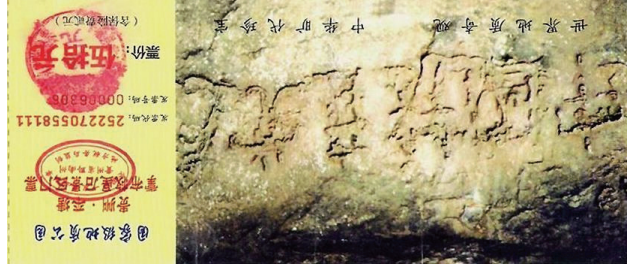 国家级地质公园
贵州·平塘
掌布救星石景区门票
贵州省黔南州
发票代码：252270558111
发票号码：00006306
票价：伍拾元
（含保险费贰元）
世界地质奇观 中华旷代珍宝